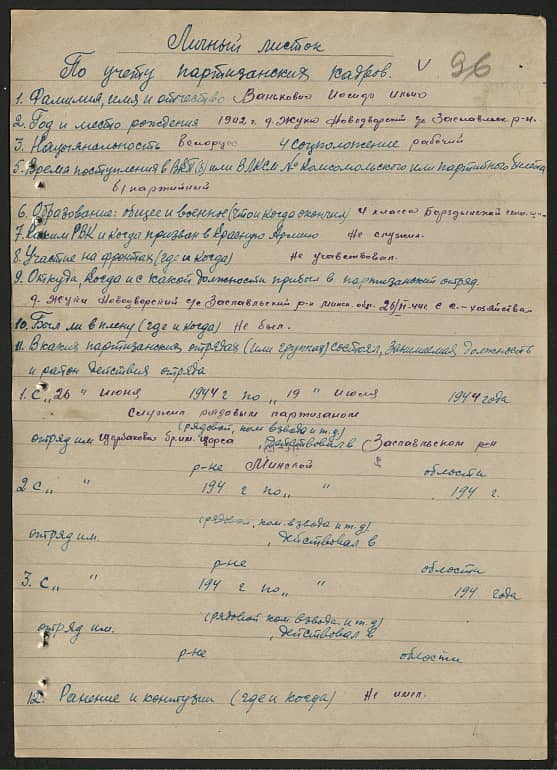 Личный листок
По учету партизанских кадров. V 96
1. Фамилия, имя и отчество Ванькович Иосиф Ильич
2. Год и место рождения 1902 г. д. Жуки Новодворский с/с Заславльск. р-н.
3. Нацыянальность Белорус 4 Соцположение рабочий
5. Время поступления в ВКП(б) или ВЛКСМ № Комсомольского или партийного билета
б/партийный
6. Образование: общее и военное (что и когда окончил) 4 класса
7. Каким РВК и когда призван в Красную Армию Не служил.
8. Участие на фронтах (где и когда) Не участвовал.
9. Откуда, когда и с какой должности прибыл в партизанский отряд.
д. Жуки Новодворский с/с Заславльский р-н Минск. обл. 26/VI-44г с с.-хозяйства
10. Был ли в плену (где и когда) Не был.
11. В каких партизанских отрядах (или группах) состоял, Занимаемая должность
и район действия отряда
1. С „ 26 " июня 1944 г по „ 19 " июля 1944 года
служил рядовым партизаном
(рядовой, ком. взвода и т.д)
отряд им Щербакова бриг. Щорса, действовал в Заславльском р-н
р-не Минской области
2 с „ " 194 г по „ " 194 г.
(рядовой, ком. взвода и т.д)
отряд им. , действовал в
р-не области
3. с „ " 194 г по „ " 194 года
(рядовой ком. взвода. и т.д)
отряд им. , действовал в
р-не области
12. Ранение и контузии (где и когда) Не имел.